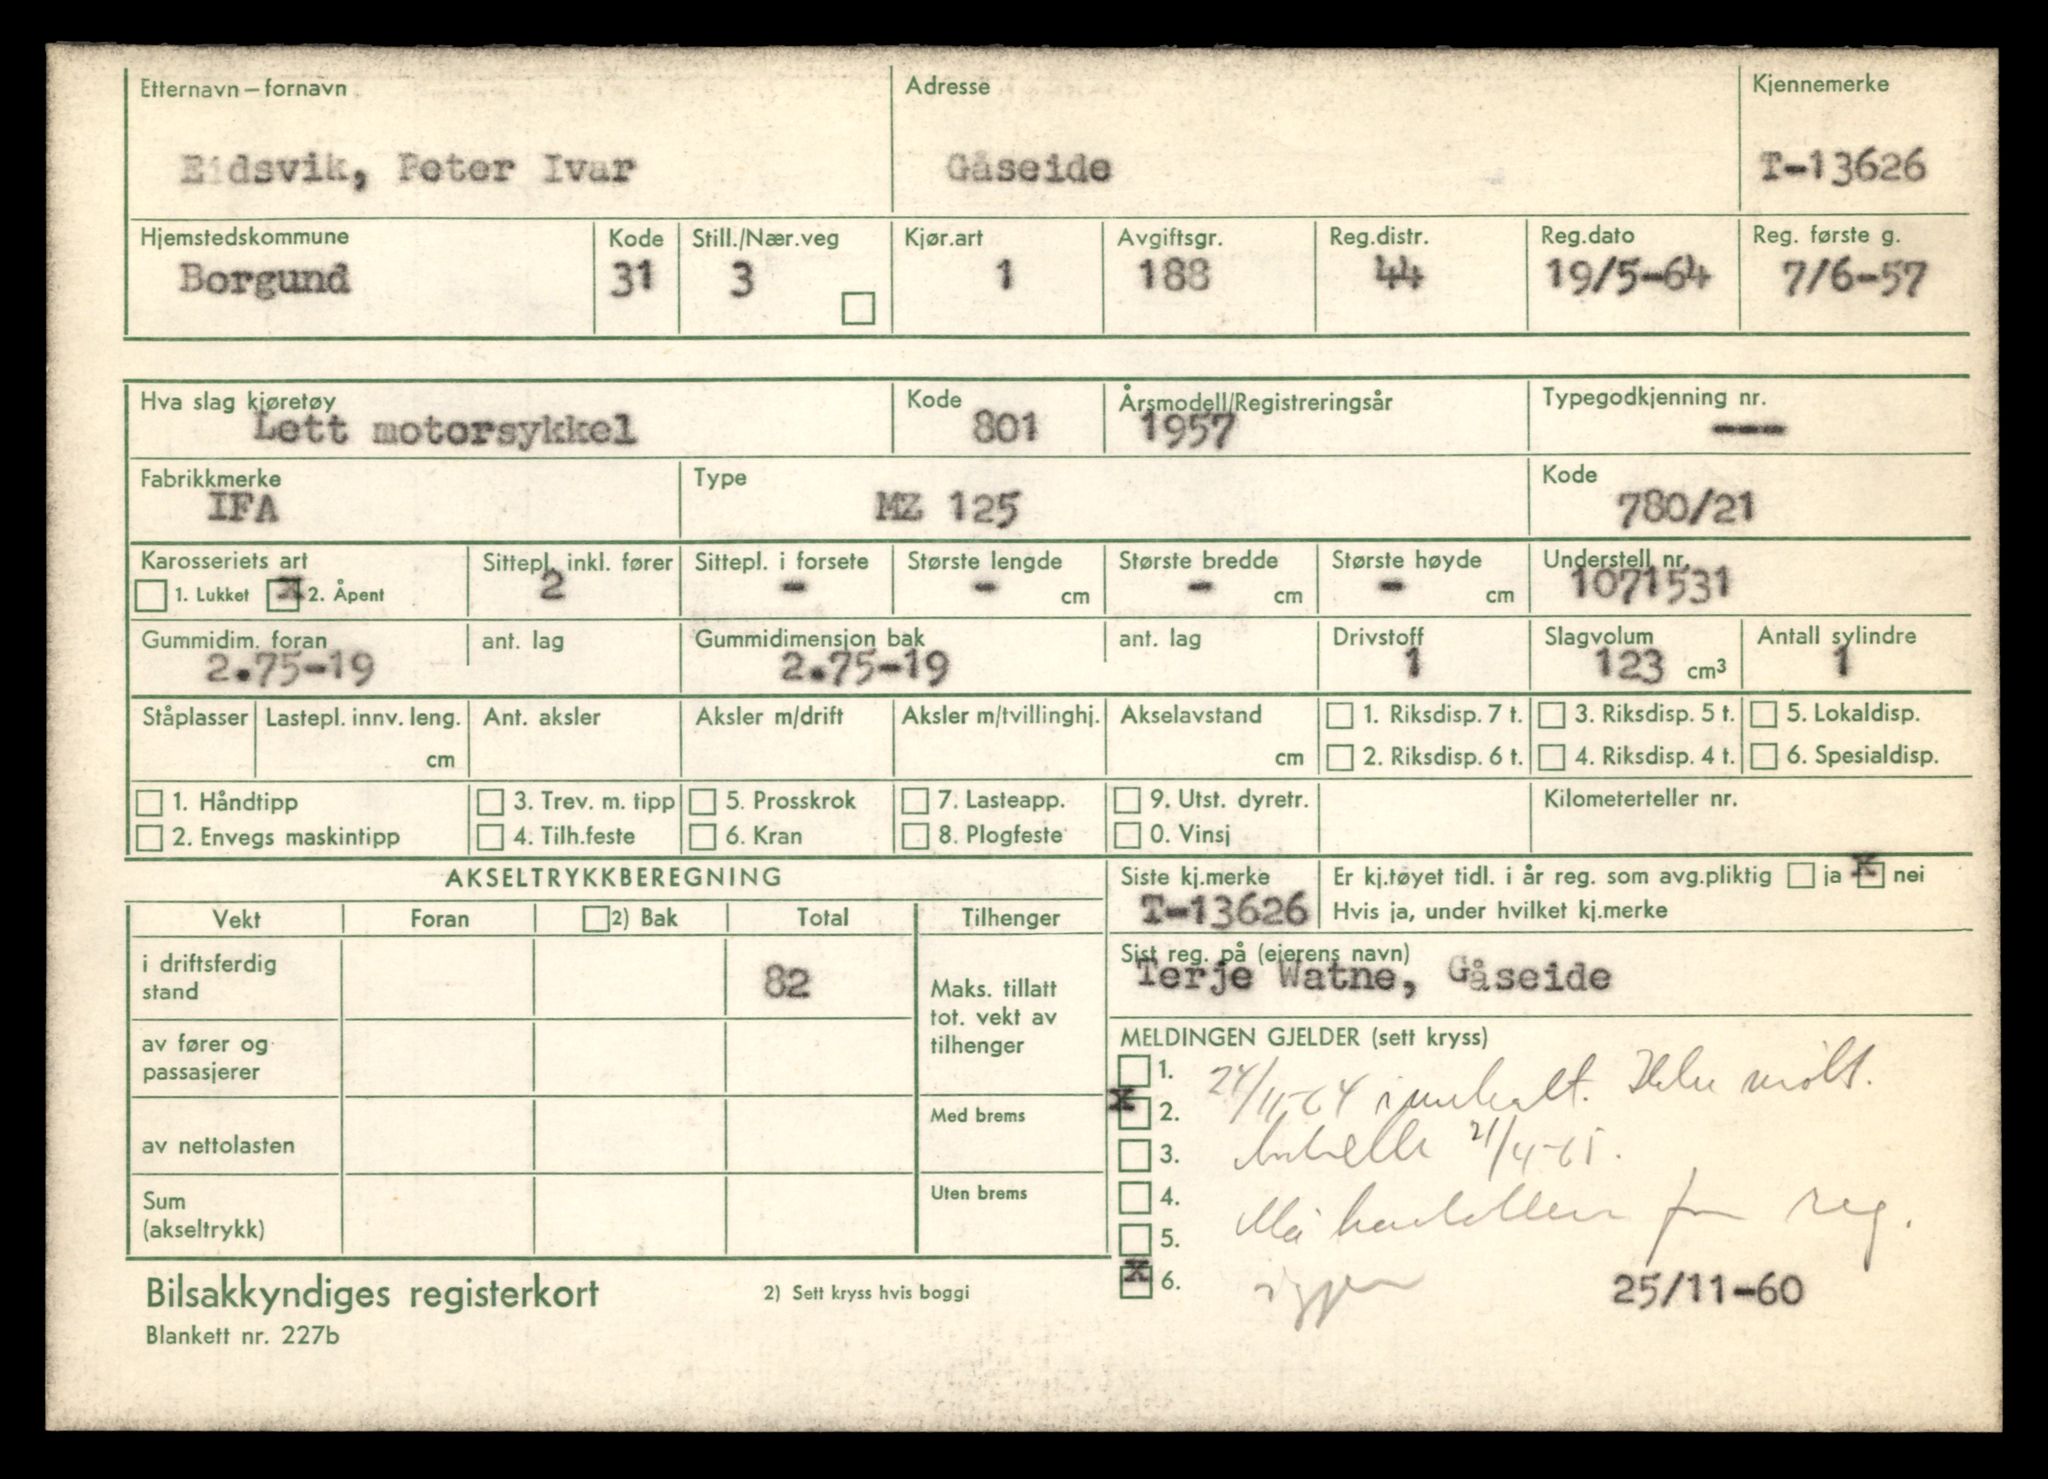 Etternavn – fornavn Adresse Kjennemerke
Eidsvik, Peter Ivar Gåseide T-13626
Hjemstedskommune Kode Still./Nær.veg Kjør.art Avgiftsgr. Reg.distr. Reg.dato Reg. første g.
Borgund 31 3 1 188 44 19/5-64 7/6-57
Hva slag kjøretøy Kode Årsmodell/Registreringsår Typegodkjenning nr.
Lett motorsykkel 801 1957 ---
Fabrikkmerke Type Kode
IFA MZ 125 780/21
Karosseriets art Sittepl. inkl. fører Sittepl. i forsete Største lengde Største bredde Største høyde Understell nr.
1. Lukket X 2. Åpent 2 - - cm - cm - cm 1071531
Gummidim. foran ant. lag Gummidimensjon bak ant. lag Drivstoff Slagvolum Antall sylindre
2.75-19 2.75-19 1 123 cm³ 1
Ståplasser Lastepl. innv. leng. Ant. aksler Aksler m/drift Aksler m/tvillinghj. Akselavstand 1. Riksdisp. 7 t. 3. Riksdisp. 5 t. 5. Lokaldisp.
cm cm 2. Riksdisp. 6 t. 4. Riksdisp. 4 t. 6. Spesialdisp.
1. Håndtipp 3. Trev. m. tipp 5. Prosskrok 7. Lasteapp. 9. Utst. dyretr. Kilometerteller nr.
2. Envegs maskintipp 4. Tilh.feste 6. Kran 8. Plogfeste 0. Vinsj
AKSELTRYKKBEREGNING Siste kj.merke Er kj.tøyet tidl. i år reg. som avg.pliktig ja X nei
T-13626 Hvis ja, under hvilket kj.merke
Vekt Foran 2) Bak Total Tilhenger
Sist reg. på (eierens navn)
Terje Watne, Gåseide
i driftsferdig stand 82
Maks. tillatt tot. vekt av tilhenger
av fører og passasjerer
MELDINGEN GJELDER (sett kryss)
1. 24/11-64 Ikke
X 2.
Med brems
av nettolasten
3. 21/4-65.
4.
Må reg.
Uten brems
Sum (akseltrykk)
5.
X 6. igjen 25/11-60
Bilsakkyndiges registerkort 2) Sett kryss hvis boggi
Blankett nr. 227b